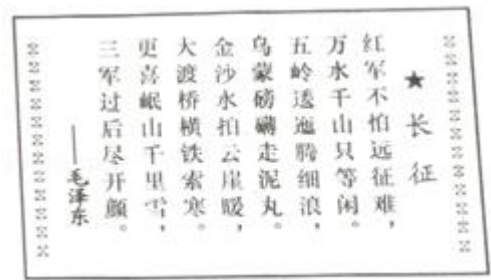 ★长征
红军不怕远征难，
万水千山只等闲。
五岭逶迤腾细浪，
乌蒙磅礴走泥丸。
金沙水拍云崖暖，
大渡桥横铁索寒。
更喜岷山千里雪，
三军过后尽开颜。
——毛泽东